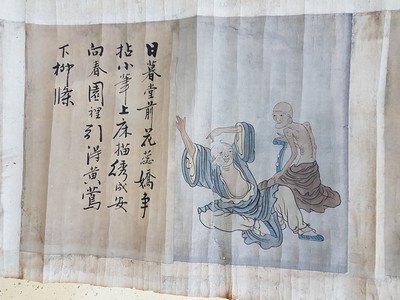 日暮堂前花蕊嬌争
拈小筆上床描綉成安
向春園裡引得黄鶯
下柳條